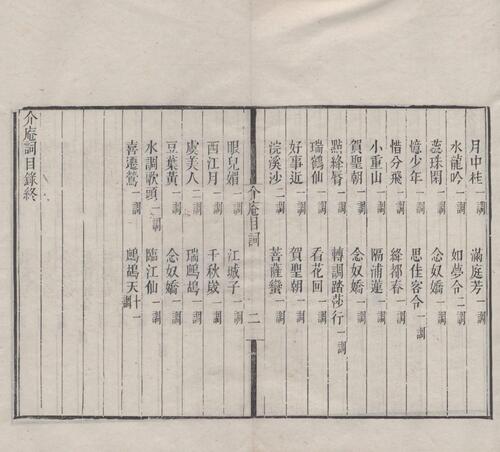 月中桂一調　滿庭芳一調
水龍吟一調　如夢令二調
蕊珠閑一調　念奴嬌一調
憶少年一調　思佳客令一調
惜分飛一調　絳都春一調
小重山一調　隔浦蓮一調
賀聖朝一調　念奴嬌一調
點絳唇一調　轉調踏莎行一調
瑞鶴仙一調　看花回一調
好事近一調　賀聖朝一調
浣溪沙二調　菩薩蠻一調
介庵目詞　二
眼兒媚一調　江城子一調
西江月一調　千秋歲一調
虞美人二調　瑞鷓鴣一調
豆葉黃一調　念奴嬌一調
水調歌頭一調　臨江仙一調
喜遷鶯一調　鷓鴣天十一調
介庵詞目錄終